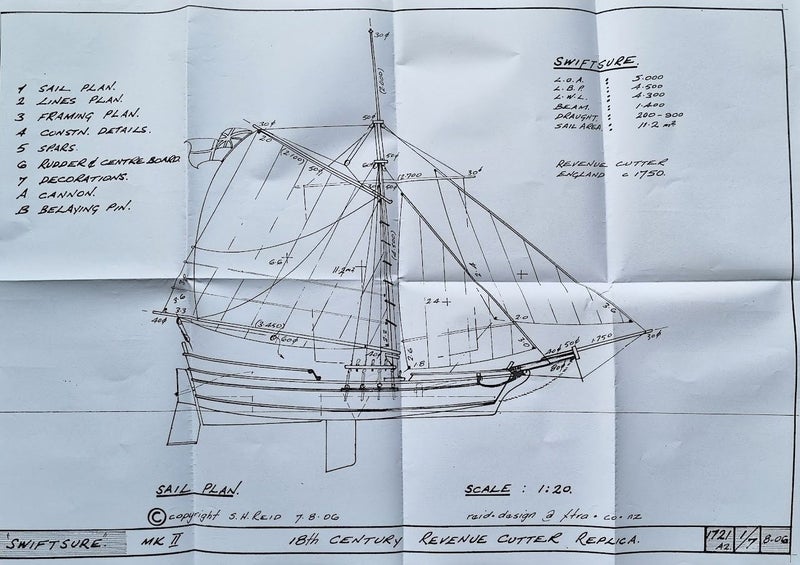 1 SAIL PLAN.
2 LINES PLAN.
3 FRAMING PLAN.
4 CONSTN. DETAILS.
5 SPARS.
6 RUDDER & CENTREBOARD
7 DECORATIONS.
A CANNON.
B BELAYING PIN.
SWIFTSURE.
L.O.A. : 5.000
L.B.P. : 4.500
L.W.L. : 4.300
BEAM. : 1.400
DRAUGHT. : 200-900
SAIL AREA. : 11.2 m²
REVENUE CUTTER
ENGLAND c 1750.
30¢
50¢
30¢
20
(2.100)
50¢
60¢
50¢
2.700
30¢
6.6
11.2m²
2.4
3.6
40¢
33
(3.450)
60¢
40¢
2.6
1.8
2.0
30
3.6
1.750
30¢
40¢ 50¢
80¢
SAIL PLAN.
SCALE : 1:20.
© copyright S.H.REID 7.8.06
reid-design @ xtra.co.nz
'SWIFTSURE.' MK II 18th CENTURY REVENUE CUTTER REPLICA. 1721 A2 1/7 8.06